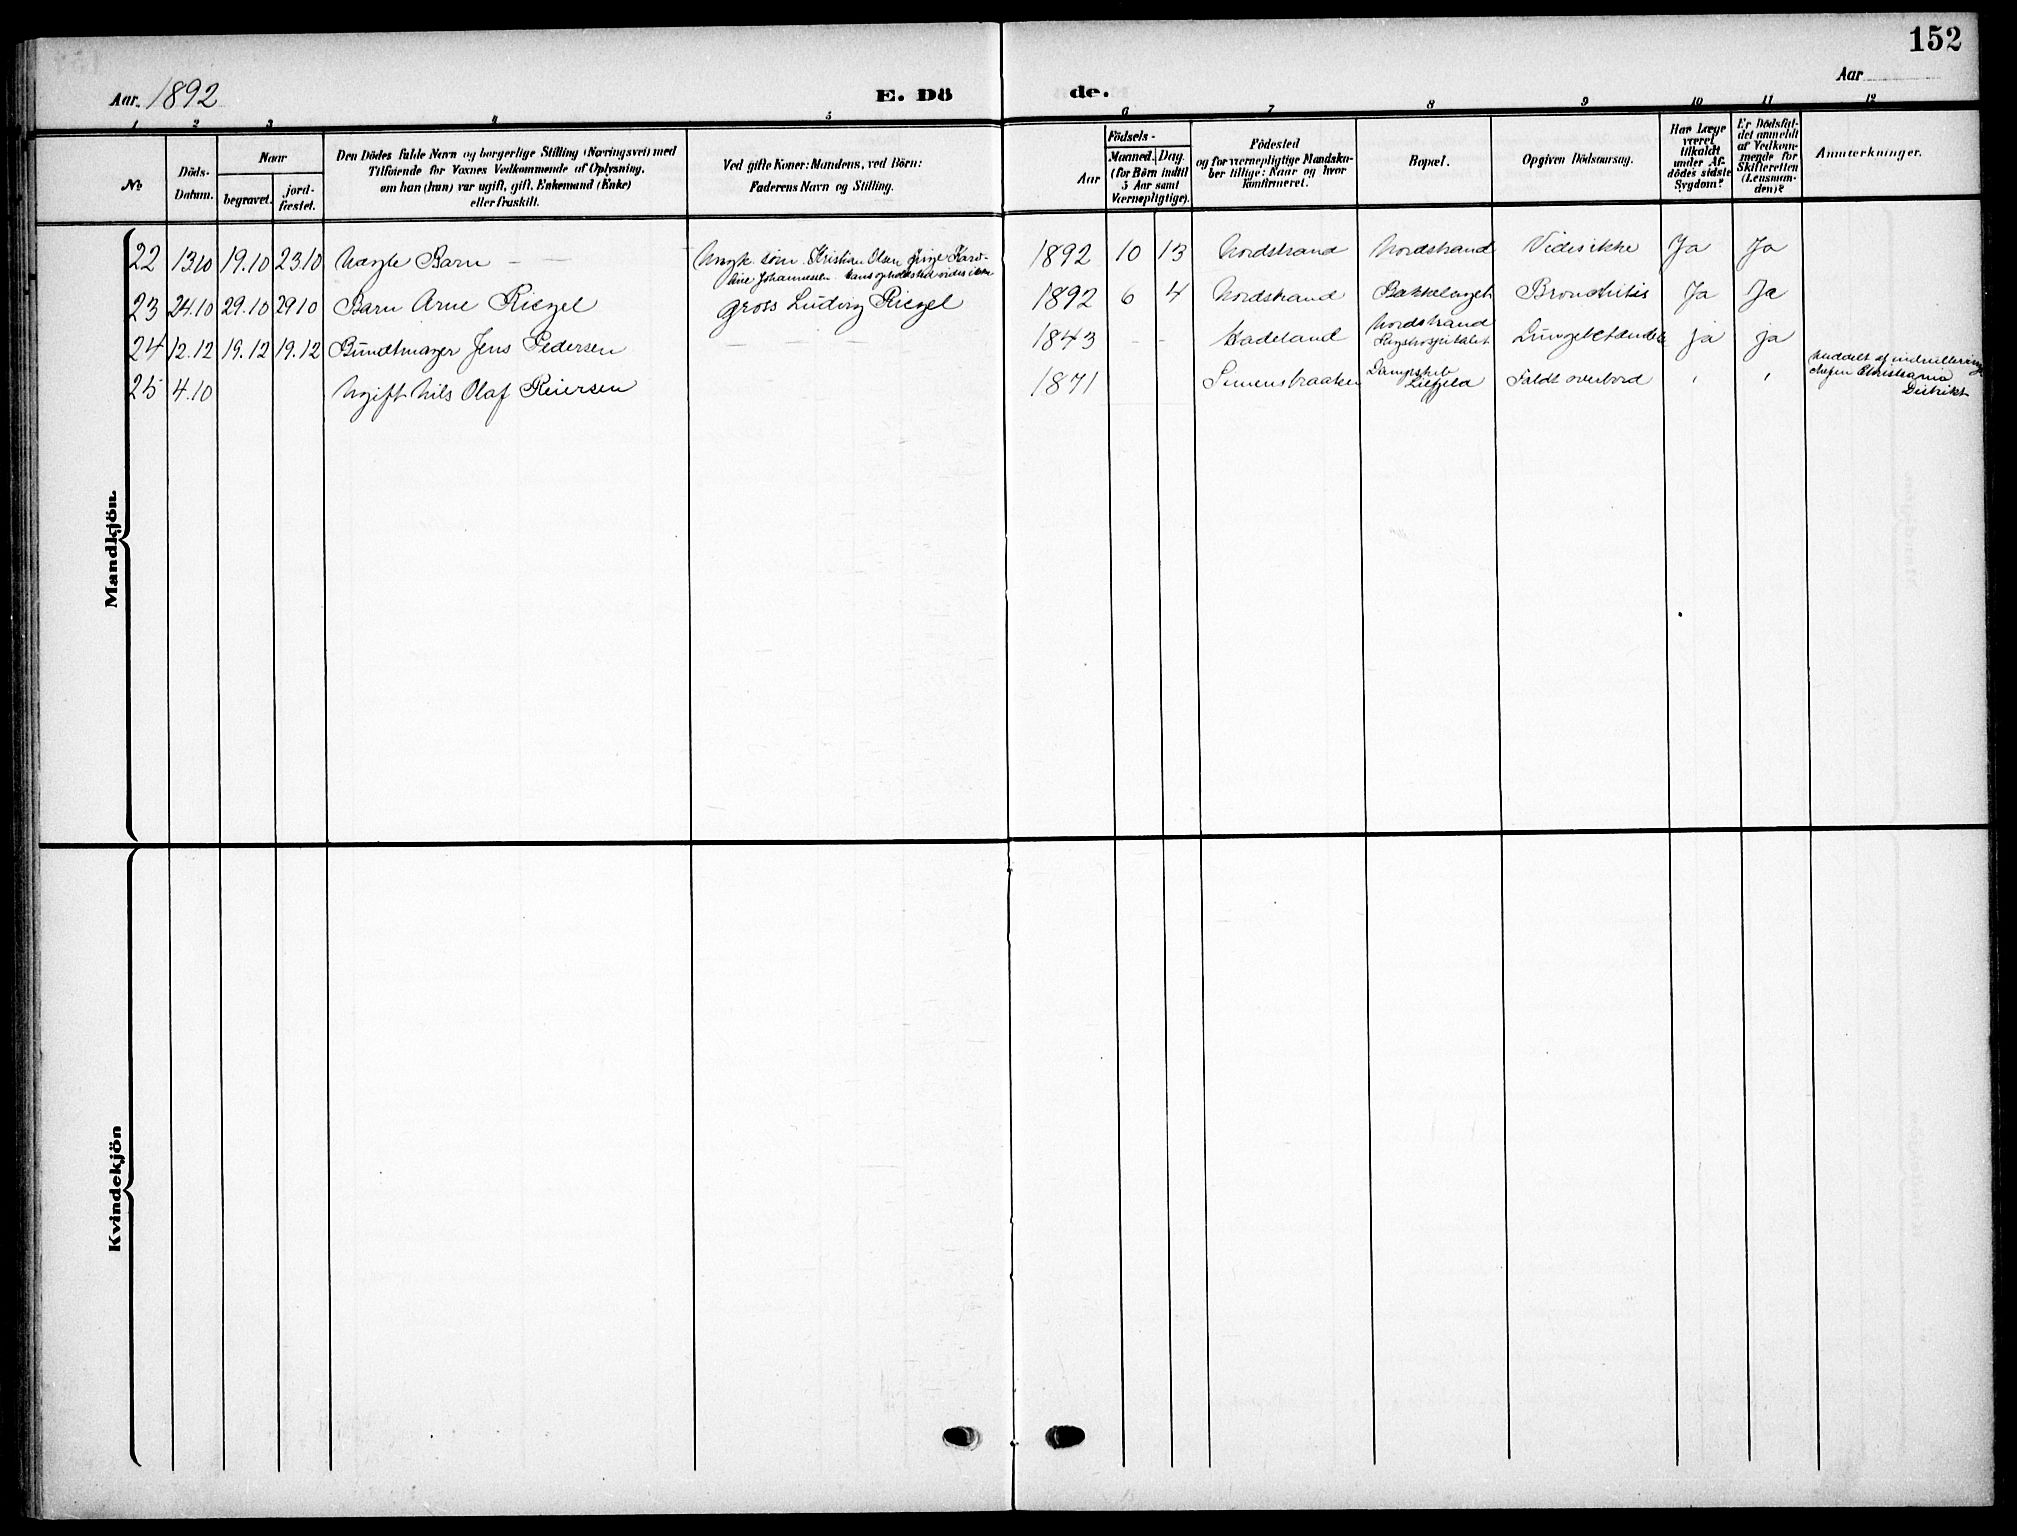 152
Aar 1892
E. Dö
de.
Aar
1 2 3 4 5 6 7 8 9 10 11 12
No
Döds-
Datum.
Naar
begravet.
jord-
fæstet.
Den Dödes fulde Navn og borgerlige Stilling (Næringsvei) med
Tilföiende for Voxnes Vedkommende af Oplysning,
om han (hun) var ugift, gift, Enkemand (Enke)
eller fraskilt.
Ved gifte Koner: Mandens, ved Börn:
Faderens Navn og Stilling.
Födsels-
Aar
Maaned. Dag.
(for Börn indtil
5 Aar samt
Værnepligtige).
Födested
og for værnepligtige Mandska-
ber tillige: Naar og hvor
konfirmeret.
Bopæl.
Opgiven Dödsaarsag.
Har Læge
været
tilkaldt
under Af-
dödes sidste
Sygdom?
Er Dödsfal-
det anmeldt
af Vedkom-
mende for
Skifteretten
(Lensman-
den)?
Anmærkninger.
Mandkjön.
22 13 10 19.10 23 10 Nægte Barn — — Kristian Olsen Karo-
line Johannesen 1892 10 13 Nordstrand Nordstrand Vides ikke Ja Ja
23 24.10 29.10 29 10 Barn Arne Riegel gross Ludvig Riegel 1892 6 4 Nordstrand Bækkelaget Bronchitis Ja Ja
24 12.12 19.12 19.12 Bundtmager Jens Pedersen — — — 1843 — — Hadeland Nordstrand
Sygehospitalet Lungebetændelse ja ja
25 4.10 Ugift Nils Olaf Reiersen 1871 Simensbraaten Dampskib
Faldt overbord ' '
Meddelt af
Christiania
Distrikt
Kvindekjön